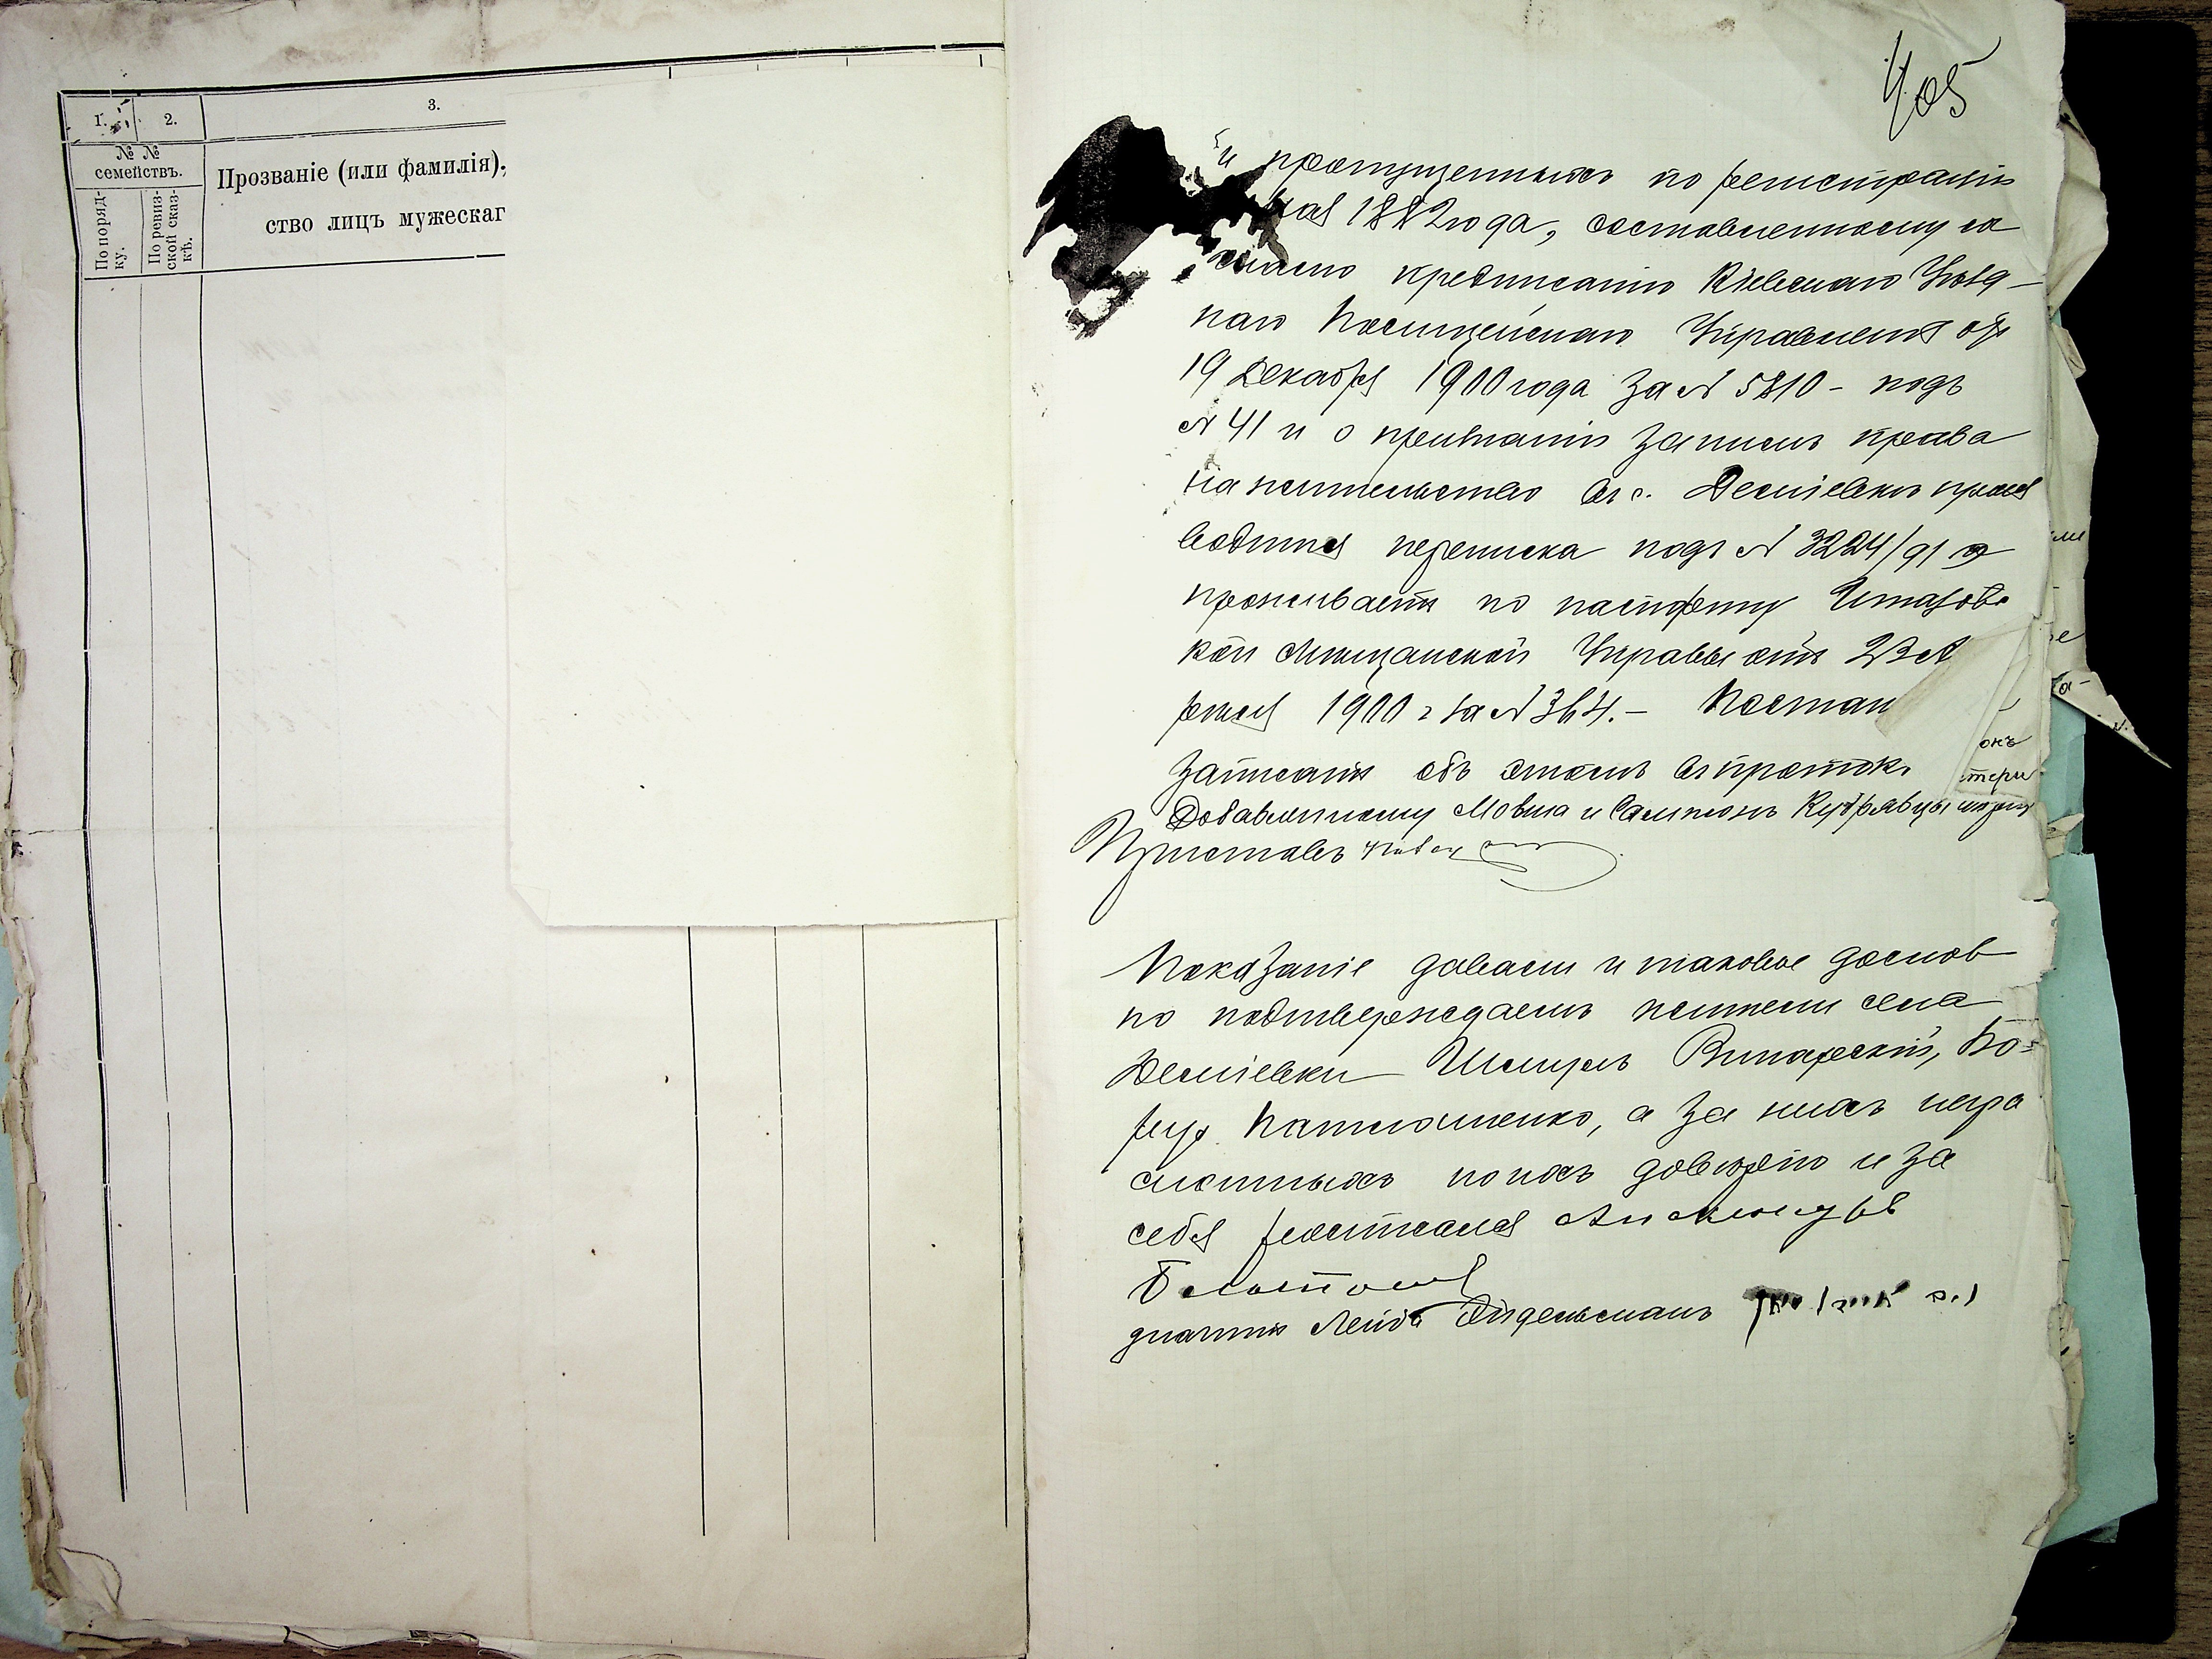 1.
2.
3.
№ №
семействъ.
По поряд-
ку.
По ревиз-
ской сказ-
кѣ.
Прозваніе (или фамилія);
ство лицъ мужескаг
405
и пропущеннымъ по регистраціи
мая 1882 года, составленному со
гласно предписанію Кіевскаго Уѣзд-
наго Полицейскаго Управленія отъ
19 Декабря 1900 года за № 5810 - подъ
№ 41 и о признаніи за нимъ права
на жительство въ с. Деміевкѣ произ
водится переписка подъ № 3224/91 и
проживаетъ по паспорту
кой Мѣщанской Управы отъ 23
реля 1900 г за № 364. - Постан
записать объ этомъ въ проток.
Добавленному Мовша и Самсонъ Кудрявцы
онъ
Приставъ
Показаніе давали и таковое дослов
но подтверждаемъ жители села
Деміевки Шмуль Винарскій, Бо-
рух Патлашенко, а за нихъ негра
мотныхъ по ихъ довѣрію и за
себя росписался Александръ
Белоползкій
значитъ Лейба Эйдельманъ